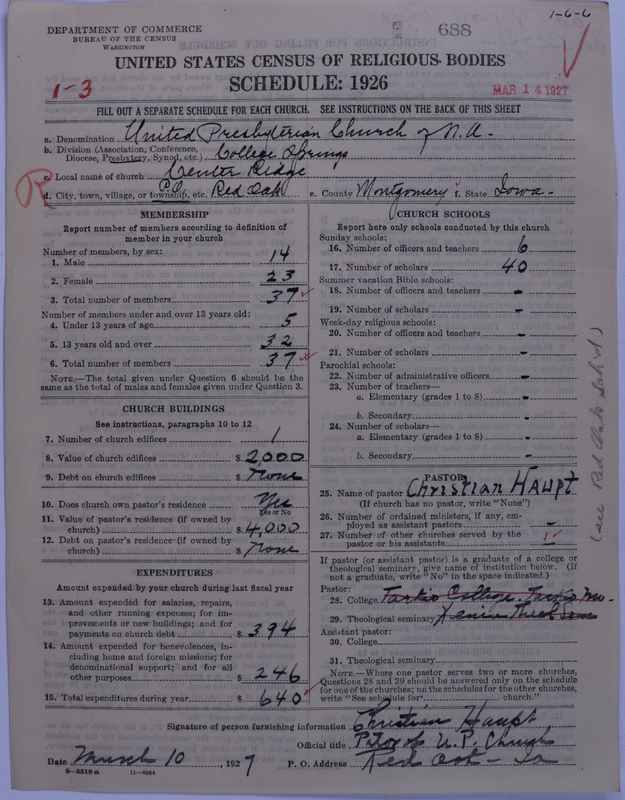 1-6-6
DEPARTMENT OF COMMERCE
BUREAU OF THE CENSUS
WASHINGTON
688
UNITED STATES CENSUS OF RELIGIOUS BODIES
1-3
SCHEDULE: 1926
MAR 14 1927
FILL OUT A SEPARATE SCHEDULE FOR EACH CHURCH. SEE INSTRUCTIONS ON THE BACK OF THIS SHEET
a. Denomination United Presbyterian Church of N.A.
b. Division (Association, Conference, Diocese, Presbytery, Synod, etc.) College Springs
c. Local name of church Center Ridge
R
d. City, town, village, or township, etc. P.O. Red Oak e. County Montgomery f. State Iowa-
MEMBERSHIP
Report number of members according to definition of
member in your church
Number of members, by sex:
1. Male 14
2. Female 23
3. Total number of members 37
Number of members under and over 13 years old:
4. Under 13 years of age 5
5. 13 years old and over 32
6. Total number of members 37
NOTE.—The total given under Question 6 should be the
same as the total of males and females given under Question 3.
CHURCH BUILDINGS
See instructions, paragraphs 10 to 12
7. Number of church edifices 1
8. Value of church edifices $ 2,000
9. Debt on church edifices $ none
10. Does church own pastor's residence Yes
Yes or No
11. Value of pastor's residence (if owned by
church) $ 4,000
12. Debt on pastor's residence (if owned by
church) $ none
EXPENDITURES
Amount expended by your church during last fiscal year
13. Amount expended for salaries, repairs,
and other running expenses; for im-
provements or new buildings; and for
payments on church debt $ 394
14. Amount expended for benevolences, in-
cluding home and foreign missions; for
denominational support; and for all
other purposes $ 246
15. Total expenditures during year $ 640
CHURCH SCHOOLS
Report here only schools conducted by this church
Sunday schools:
16. Number of officers and teachers 6
17. Number of scholars 40
Summer vacation Bible schools:
18. Number of officers and teachers -
19. Number of scholars -
Week-day religious schools:
20. Number of officers and teachers -
21. Number of scholars -
Parochial schools:
22. Number of administrative officers -
23. Number of teachers—
a. Elementary (grades 1 to 8) -
b. Secondary -
24. Number of scholars—
a. Elementary (grades 1 to 8) -
b. Secondary -
PASTOR
25. Name of pastor Christian Haupt
(If church has no pastor, write "None")
26. Number of ordained ministers, if any, em-
ployed as assistant pastors -
27. Number of other churches served by the
pastor or his assistants 1
If pastor (or assistant pastor) is a graduate of a college or
theological seminary, give name of institution below. (If
not a graduate, write "No" in the space indicated.)
Pastor:
28. College Tarkio College, Tarkio Mo.
29. Theological seminary Xenia Theol Sem
Assistant pastor:
30. College
31. Theological seminary
NOTE.—Where one pastor serves two or more churches,
Questions 28 and 29 should be answered only on the schedule
for one of the churches; on the schedules for the other churches,
write "See schedule for church."
(see Red Oak Sched.)
Signature of person furnishing information Christian Haupt
Official title Pastor of U.P. Church
Date March 10, 1927 P. O. Address Red Oak - Ia
8-5518 a 11-9054